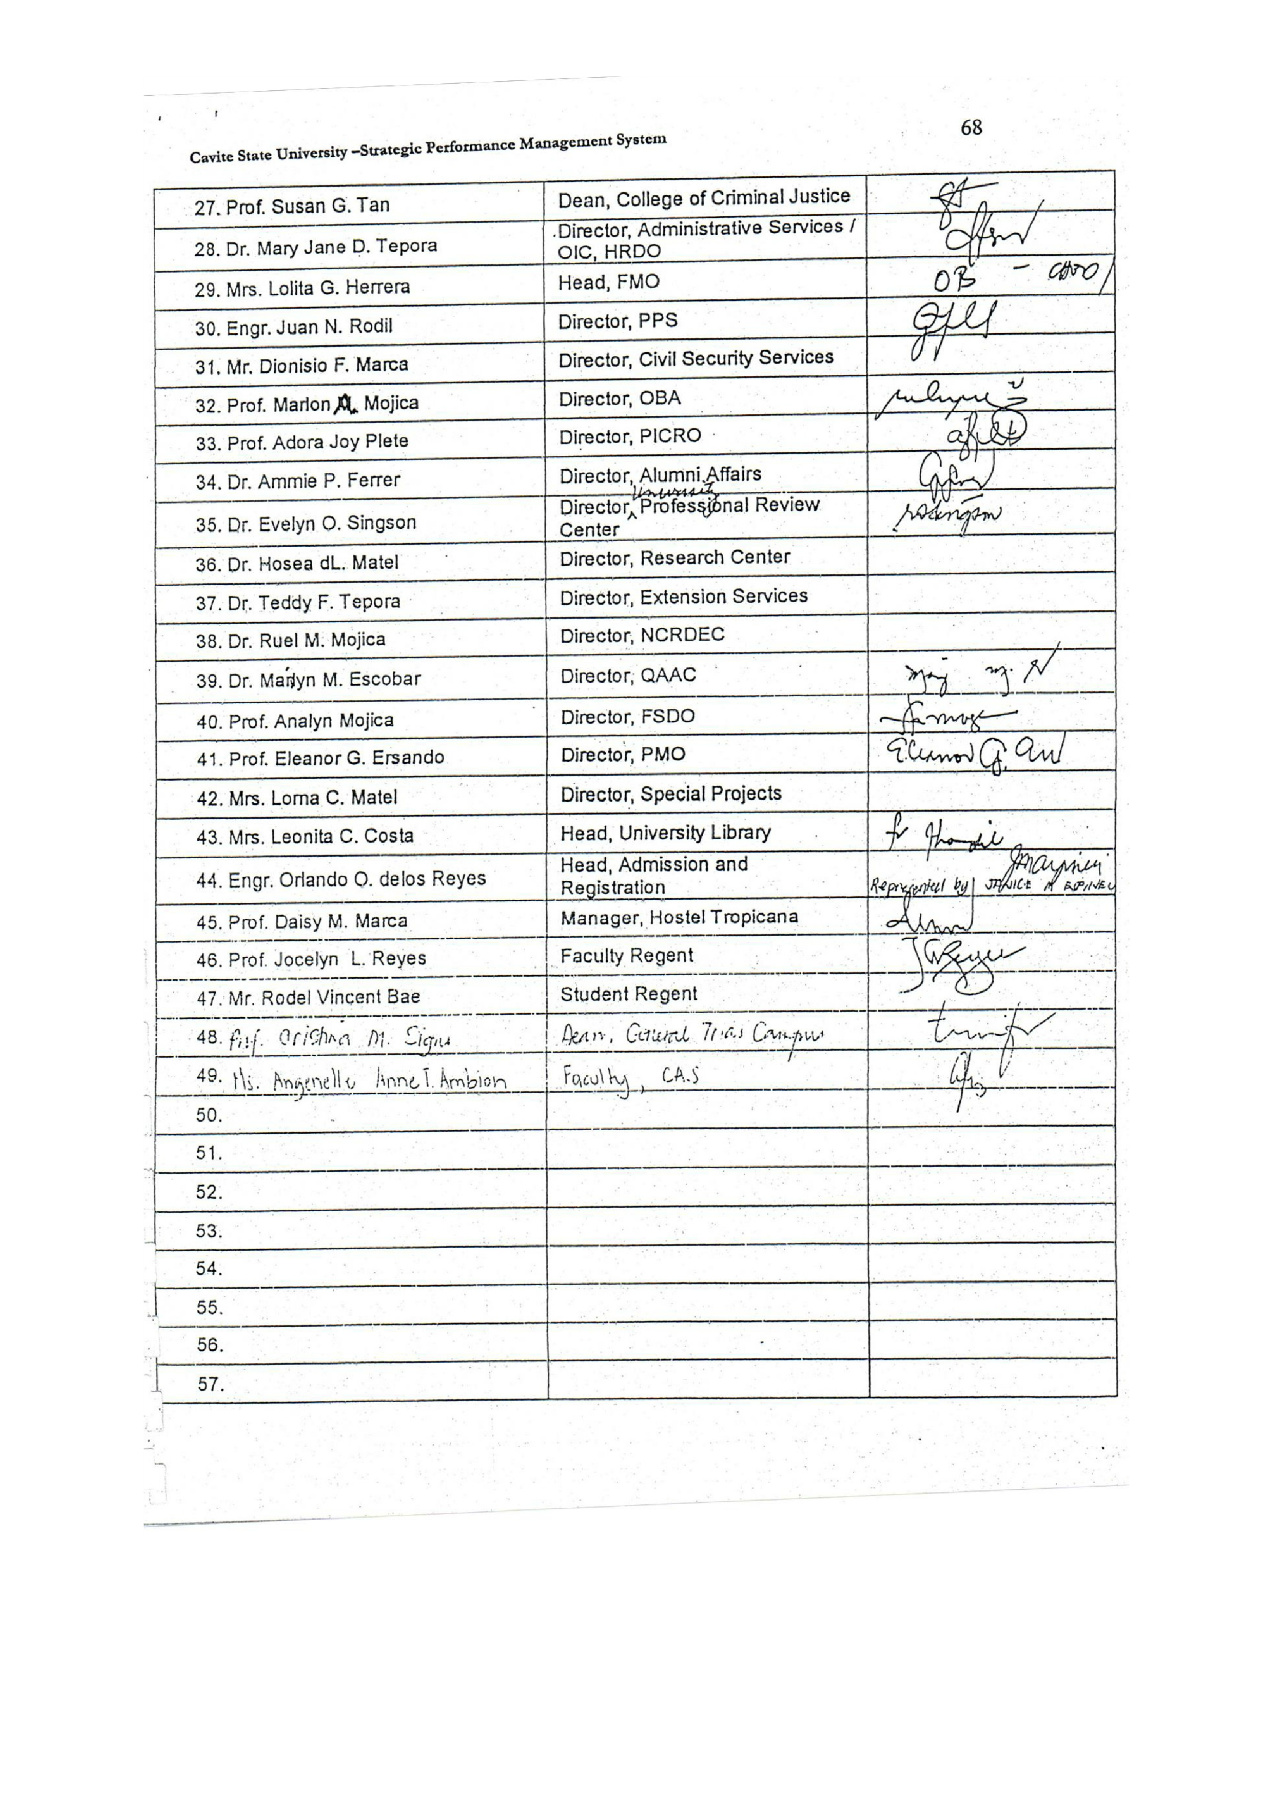 68
Cavite State University –Strategic Performance Management System
27. Prof. Susan G. Tan
Dean, College of Criminal Justice
28. Dr. Mary Jane D. Tepora
Director, Administrative Services /
OIC, HRDO
29. Mrs. Lolita G. Herrera
Head, FMO
OB -
30. Engr. Juan N. Rodil
Director, PPS
31. Mr. Dionisio F. Marca
Director, Civil Security Services
32. Prof. Marlon A. Mojica
Director, OBA
33. Prof. Adora Joy Plete
Director, PICRO
34. Dr. Ammie P. Ferrer
Director, Alumni Affairs
University
35. Dr. Evelyn O. Singson
Director, Professional Review
Center
36. Dr. Hosea dL. Matel
Director, Research Center
37. Dr. Teddy F. Tepora
Director, Extension Services
38. Dr. Ruel M. Mojica
Director, NCRDEC
39. Dr. Marilyn M. Escobar
Director, QAAC
40. Prof. Analyn Mojica
Director, FSDO
41. Prof. Eleanor G. Ersando
Director, PMO
42. Mrs. Lorna C. Matel
Director, Special Projects
43. Mrs. Leonita C. Costa
Head, University Library
44. Engr. Orlando O. delos Reyes
Head, Admission and
Registration
Represented by JANICE
45. Prof. Daisy M. Marca
Manager, Hostel Tropicana
46. Prof. Jocelyn L. Reyes
Faculty Regent
47. Mr. Rodel Vincent Bae
Student Regent
48. Prof. Cristina M. Signo
Dean, General Trias Campus
49. Ms. Angenelle Anne T. Ambion
Faculty, CAS
50.
51.
52.
53.
54.
55.
56.
57.